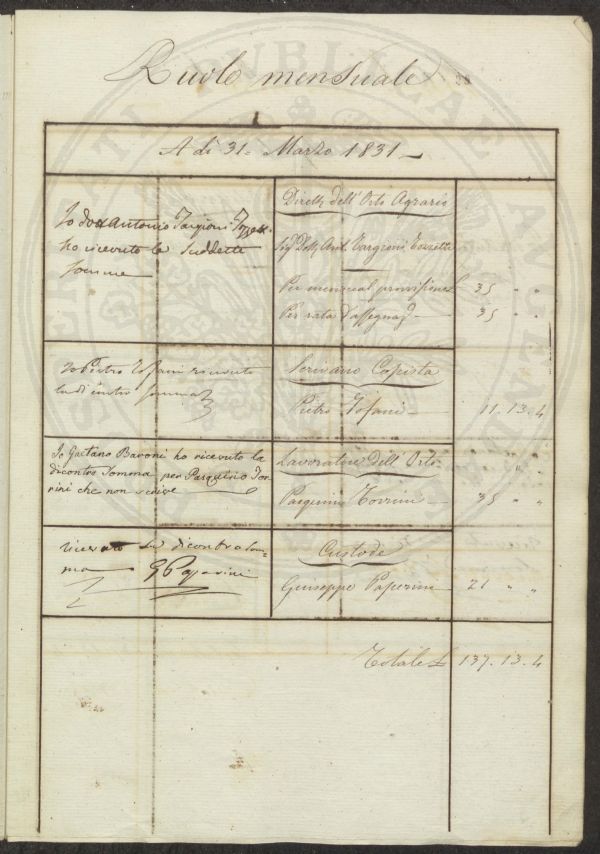 Ruolo mensuale
A dì 31. Marzo 1831
Io dott Antonio Targioni Tozzett
ho ricevuto le suddette
somme
Dirett dell'Orto Agrario
Sig Dott Ant. Targioni Tozzetti
Per mensual provvisione 35 " "
Per rata d'assegnaz 35 " "
Io Pietro Tofani ricevuto
la di contro somma
Scrivano Copista
Pietro Tofani 11. 13. 4
Io Gaetano Baroni ho ricevuto la
dicontro Somma per Pasquino Tor-
rini che non scrive
Lavoratore dell'Orto " "
Pasquino Torrini 35 " "
ricevuto la dicontro som-
ma G Paperini
Custode
Giuseppe Paperini 21 " "
Totale £ 137. 13. 4